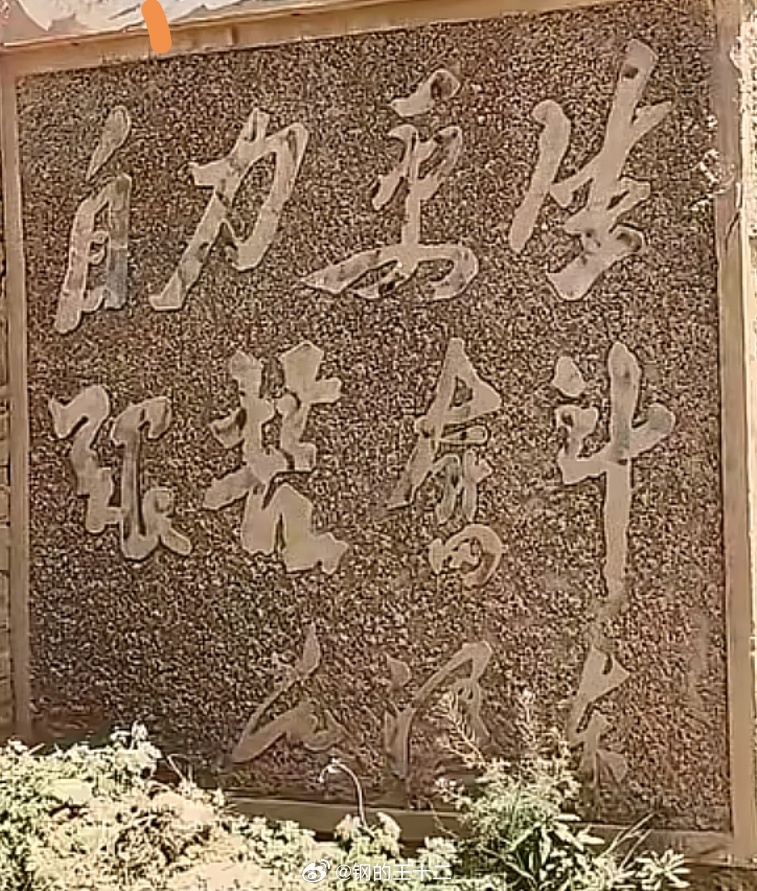 自力更生
艰苦奮斗
毛泽东
@钢的王十二